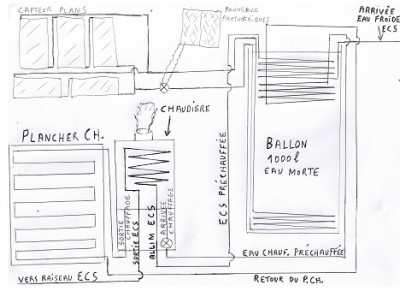 CAPTEUR PLANS
PANNEAUX
PHOTOVOLTAÏQUES
ARRIVÉE
EAU FROIDE
ECS
CHAUDIÈRE
PLANCHER CH.
BALLON
1000 l
EAU MORTE
SORTIE CHAUFFAGE
SORTIE ECS
ALLIM ECS
ARRIVÉE
CHAUFFAGE
ECS PRÉCHAUFFÉE
EAU CHAUF. PRÉCHAUFFÉE
VERS RAISEAU ECS
RETOUR DU P.CH.